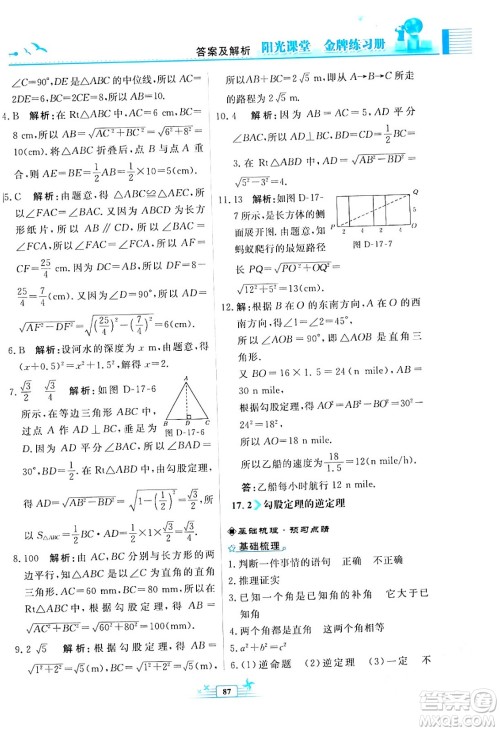 答案及解析 阳光课堂 金牌练习册
∠C=90°,DE 是△ABC 的中位线,所以 AC=
2DE=6,BC=2DC=8(cm).
4. B 解析:在 Rt△ABC 中,AC=6 cm,BC=
8 cm,所以 AB=√(AC²+BC²)=√(6²+8²)=
10(cm).将△ABC 折叠后,点 B 与点 A
重合,所以 AE=BE=1/2 AB=1/2×10=5(cm).
5. C 解析:由题意,得△ABC≌△AFC,所
以∠FAC=∠BAC.又因为四边形 ABCD 为长
方形纸片,所以 AB∥CD.所以∠FCA=
∠BAC.所以∠FAC=∠FCA.所以 FC=
AF=25/4 cm.又因为∠D=90°,所以 AD=
√(AF²−DF²)=√((25/4)²−(7/4)²)=6(cm).
6. B 解析:设河水的深度为 x m,由题意,得
(x+0.5)²=x²+1.5²,解得 x=2.
7. √3/2 √3/4 解析:如图 D-17-6
所示,在等边三角形 ABC
中,作 AD⊥BC,垂足为
D.又因为 AB=AC,所以
BD=DC=1/2,∠BAD=
30°.在△ABD 中,由勾股定理,得
AD=√(AB²−BD²)=√(1²−(1/2)²)=√3/2,所
以 S△ABC=1/2 BC·AD=1/2×1×√3/2=√3/4.
A
B
D
C
图 D-17-6
8. 100 解析:因为 AC,BC 分别与长方形的两
边平行,则△ABC 是以∠C 为直角的直角
三角形.
Rt△ABC 中,根据勾股定理,得 AB=
√(AC²+BC²)=√(60²+80²)=100(mm).
9. 2√5 解析:由勾股定理,得 AB=
√(1.5²+2²)=√(2.5)²(m),BC=√(1.5²+2²)=
√(2.5)²(m),AC=√(4²+2²)=2√5(m),所以所
走的路程为 2√5 m.
10. 4 解析:因为AD平分∠BAC,所以AD⊥
BC,BD=CD=1/2 BC=1/2×6=3(cm).
因为 Rt△ABD 中,∠ADB=90°,所以
AD²+BD²=AB²,即 AD=√(AB²−BD²)=
√(5²−3²)=4(cm).
11. 13 解析:如图 D-17-
7 所示,将长方体的侧
面展开图,由题意,得
蚂蚁爬行的最短路径
长 PQ=√(PO²+QO²)=
√(12²+5²)=13(cm).
Q
P 2 4 2 4 O
图 D-17-7
12. 解:根据 B 在 O 的东南方向,A 在 O 的西
南方向,所以∠AOB=90°,即△AOB 是直角三
角形.
又 BO=16×1.5=24(n mile),AB=
30 n mile.
根据勾股定理,得 AO²=AB²−BO²=30²−
24²=18².
所以 AO=18 n mile.
所以乙船的速度为 18/1.5=12(n mile).
答:乙船每小时航行 12 n mile.
17.2 勾股定理的逆定理
基础梳理·预习点睛
基础梳理
1. 判断一件事情的语句 题设 结论
2. 推理证实
3. c²=a²+b² 90° 边 直角三角形 已
知角
4. 两个角都是直角 两个角相等
5. a²+b²=c²
6. (1)逆命题 (2)逆定理 (3)一定 不
87